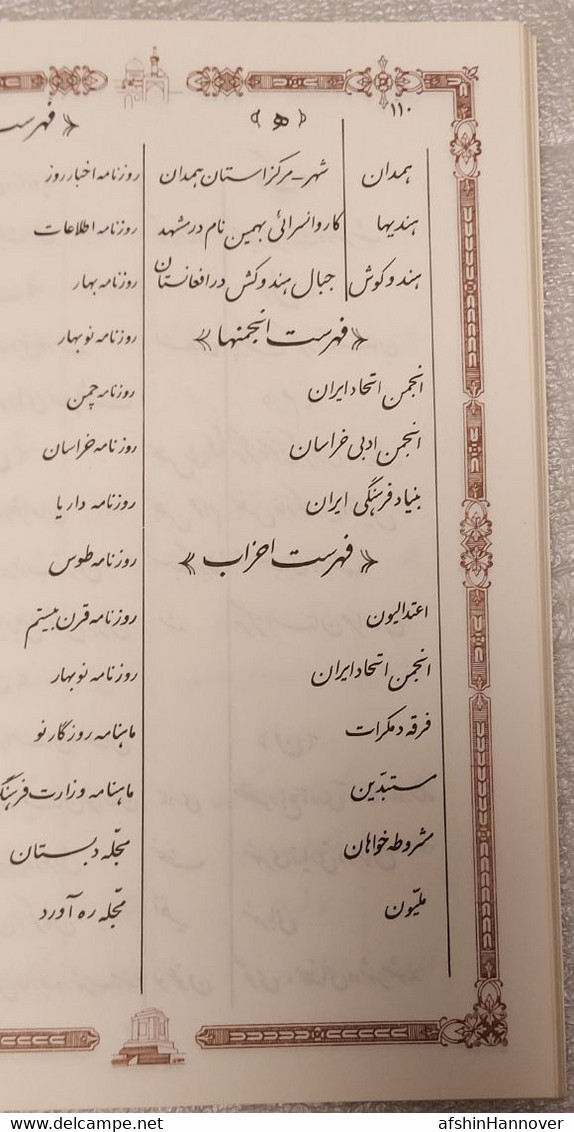 ۱۱۰
﴿ ه ﴾
همدان شهر ـ مرکز استان همدان
هندیها کاروانسرائی بهمین نام در مشهد
هندوکوش جبال هندوکش در افغانستان
﴿ فهرست انجمنها ﴾
انجمن اتحاد ایران
انجمن ادبی خراسان
بنیاد فرهنگی ایران
﴿ فهرست احزاب ﴾
اعتدالیون
انجمن اتحاد ایران
فرقه دمکرات
مستبدّین
مشروطه خواهان
ملیّون
﴿ فهرست
روزنامه اخبار روز
روزنامه اطلاعات
روزنامه بهار
روزنامه نوبهار
روزنامه چمن
روزنامه خراسان
روزنامه داریا
روزنامه طوس
روزنامه قرن بیستم
روزنامه نوبهار
ماهنامه روزگار نو
ماهنامه وزارت فرهنگ
مجّله دبستان
مجّله ره آورد
www.delcampe.net
afshinHannover